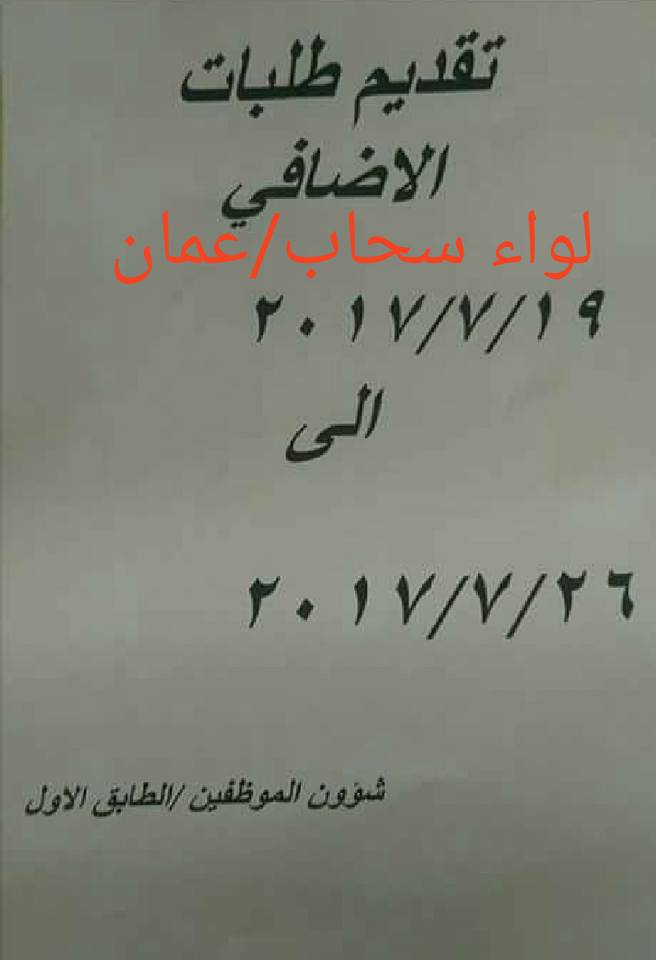 تقديم طلبات
الاضافي
لواء سحاب/عمان
٢٠١٧/٧/١٩
الى
٢٠١٧/٧/٢٦
شؤون الموظفين /الطابق الاول